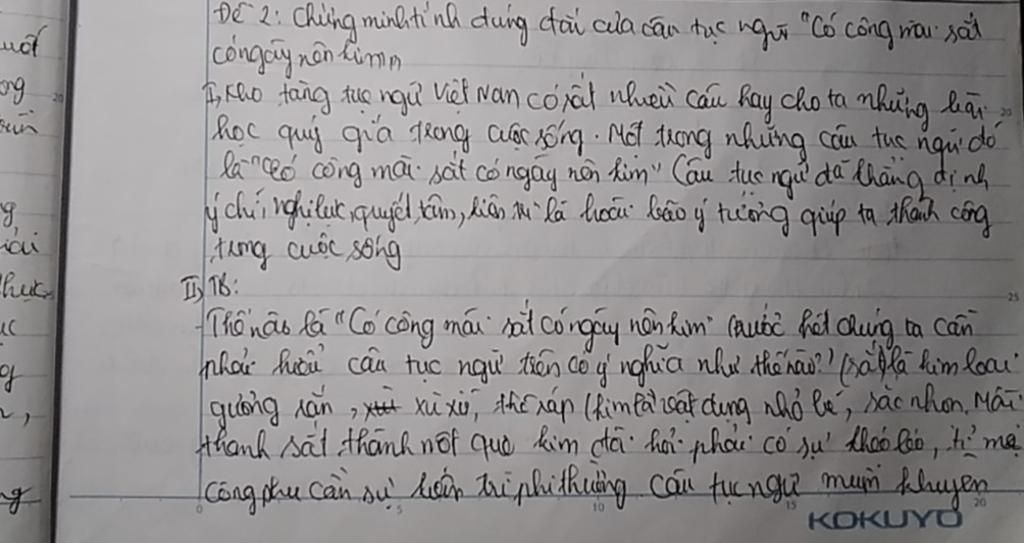 Đề 2: Chứng minh tính đúng đắn của câu tục ngữ "Có công mài sắt
có ngày nên kim"
I, Kho tàng tục ngữ Việt Nam có rất nhiều câu hay cho ta những bài
học quý giá trong cuộc sống. Một trong những câu tục ngữ đó
là "Có công mài sắt có ngày nên kim" Câu tục ngữ đã khẳng định
ý chí, nghị lực, quyết tâm, kiên trì là hoài bão ý tưởng giúp ta thành công
trong cuộc sống
II, TB:
Thế nào là "Có công mài sắt có ngày nên kim" trước hết chúng ta cần
phải hiểu câu tục ngữ trên có ý nghĩa như thế nào? (sắt) là kim loại
cứng rắn, xù xì, thô ráp (kim) là vật dụng nhỏ bé, sắc nhọn. Mài
thanh sắt thành một que kim đòi hỏi phải có sự khéo léo, tỉ mỉ
công phu cần sự kiên trì phi thường Câu tục ngữ muốn khuyên
uốt
ong
g
hực
uc
g
ng
20
20
25
0
5
10
15
20
KOKUYO